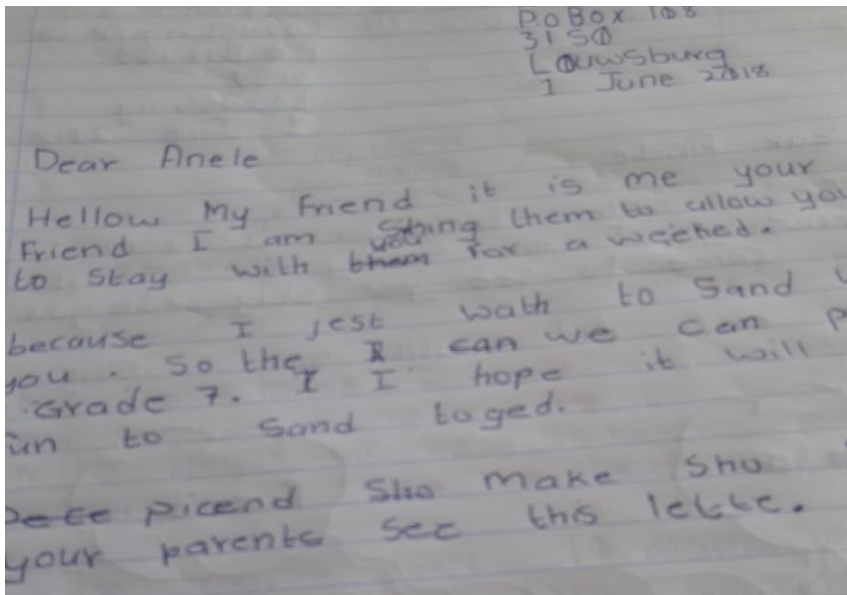 P.O Box 108
3150
Louwsburg
1 June 2018
Dear Anele
Hellow My Friend it is me your
Friend I am string them to allow you
to stay with you them for a weehed.
because I jest wath to Sand
you. So the I can we can P
Grade 7. I I hope it will
un to Sand toged.
picend Sho make Sho
your parents see this lette.